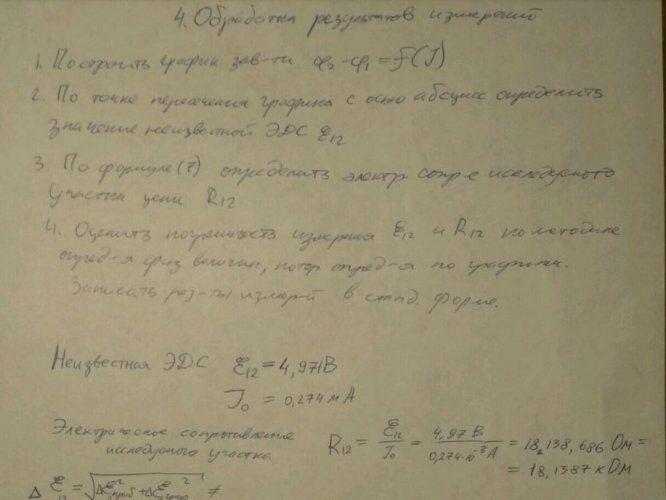 4. Обработка результатов измерений
1. Построить график зав-ти φ₂-φ₁ = f(J)
2. По точке пересечения графика с осью абсцисс определить
значение неизвестной ЭДС ℰ₁₂
3. По формуле (7) определить электр. сопр-е исследуемого
участка цепи R₁₂
4. Оценить погрешность измерения ℰ₁₂ и R₁₂ по методике
опред-я физ величин, котор опред-я по графикам.
Записать рез-ты измерй в станд. форме.
Неизвестная ЭДС ℰ₁₂ = 4,971В
J₀ = 0,274 мА
Электрическое сопротивление
исследуемого участка
R₁₂ = ℰ₁₂/J₀ = 4,97 В/0,274·10⁻³А = 18,138,686 Ом =
= 18,1387 кОм